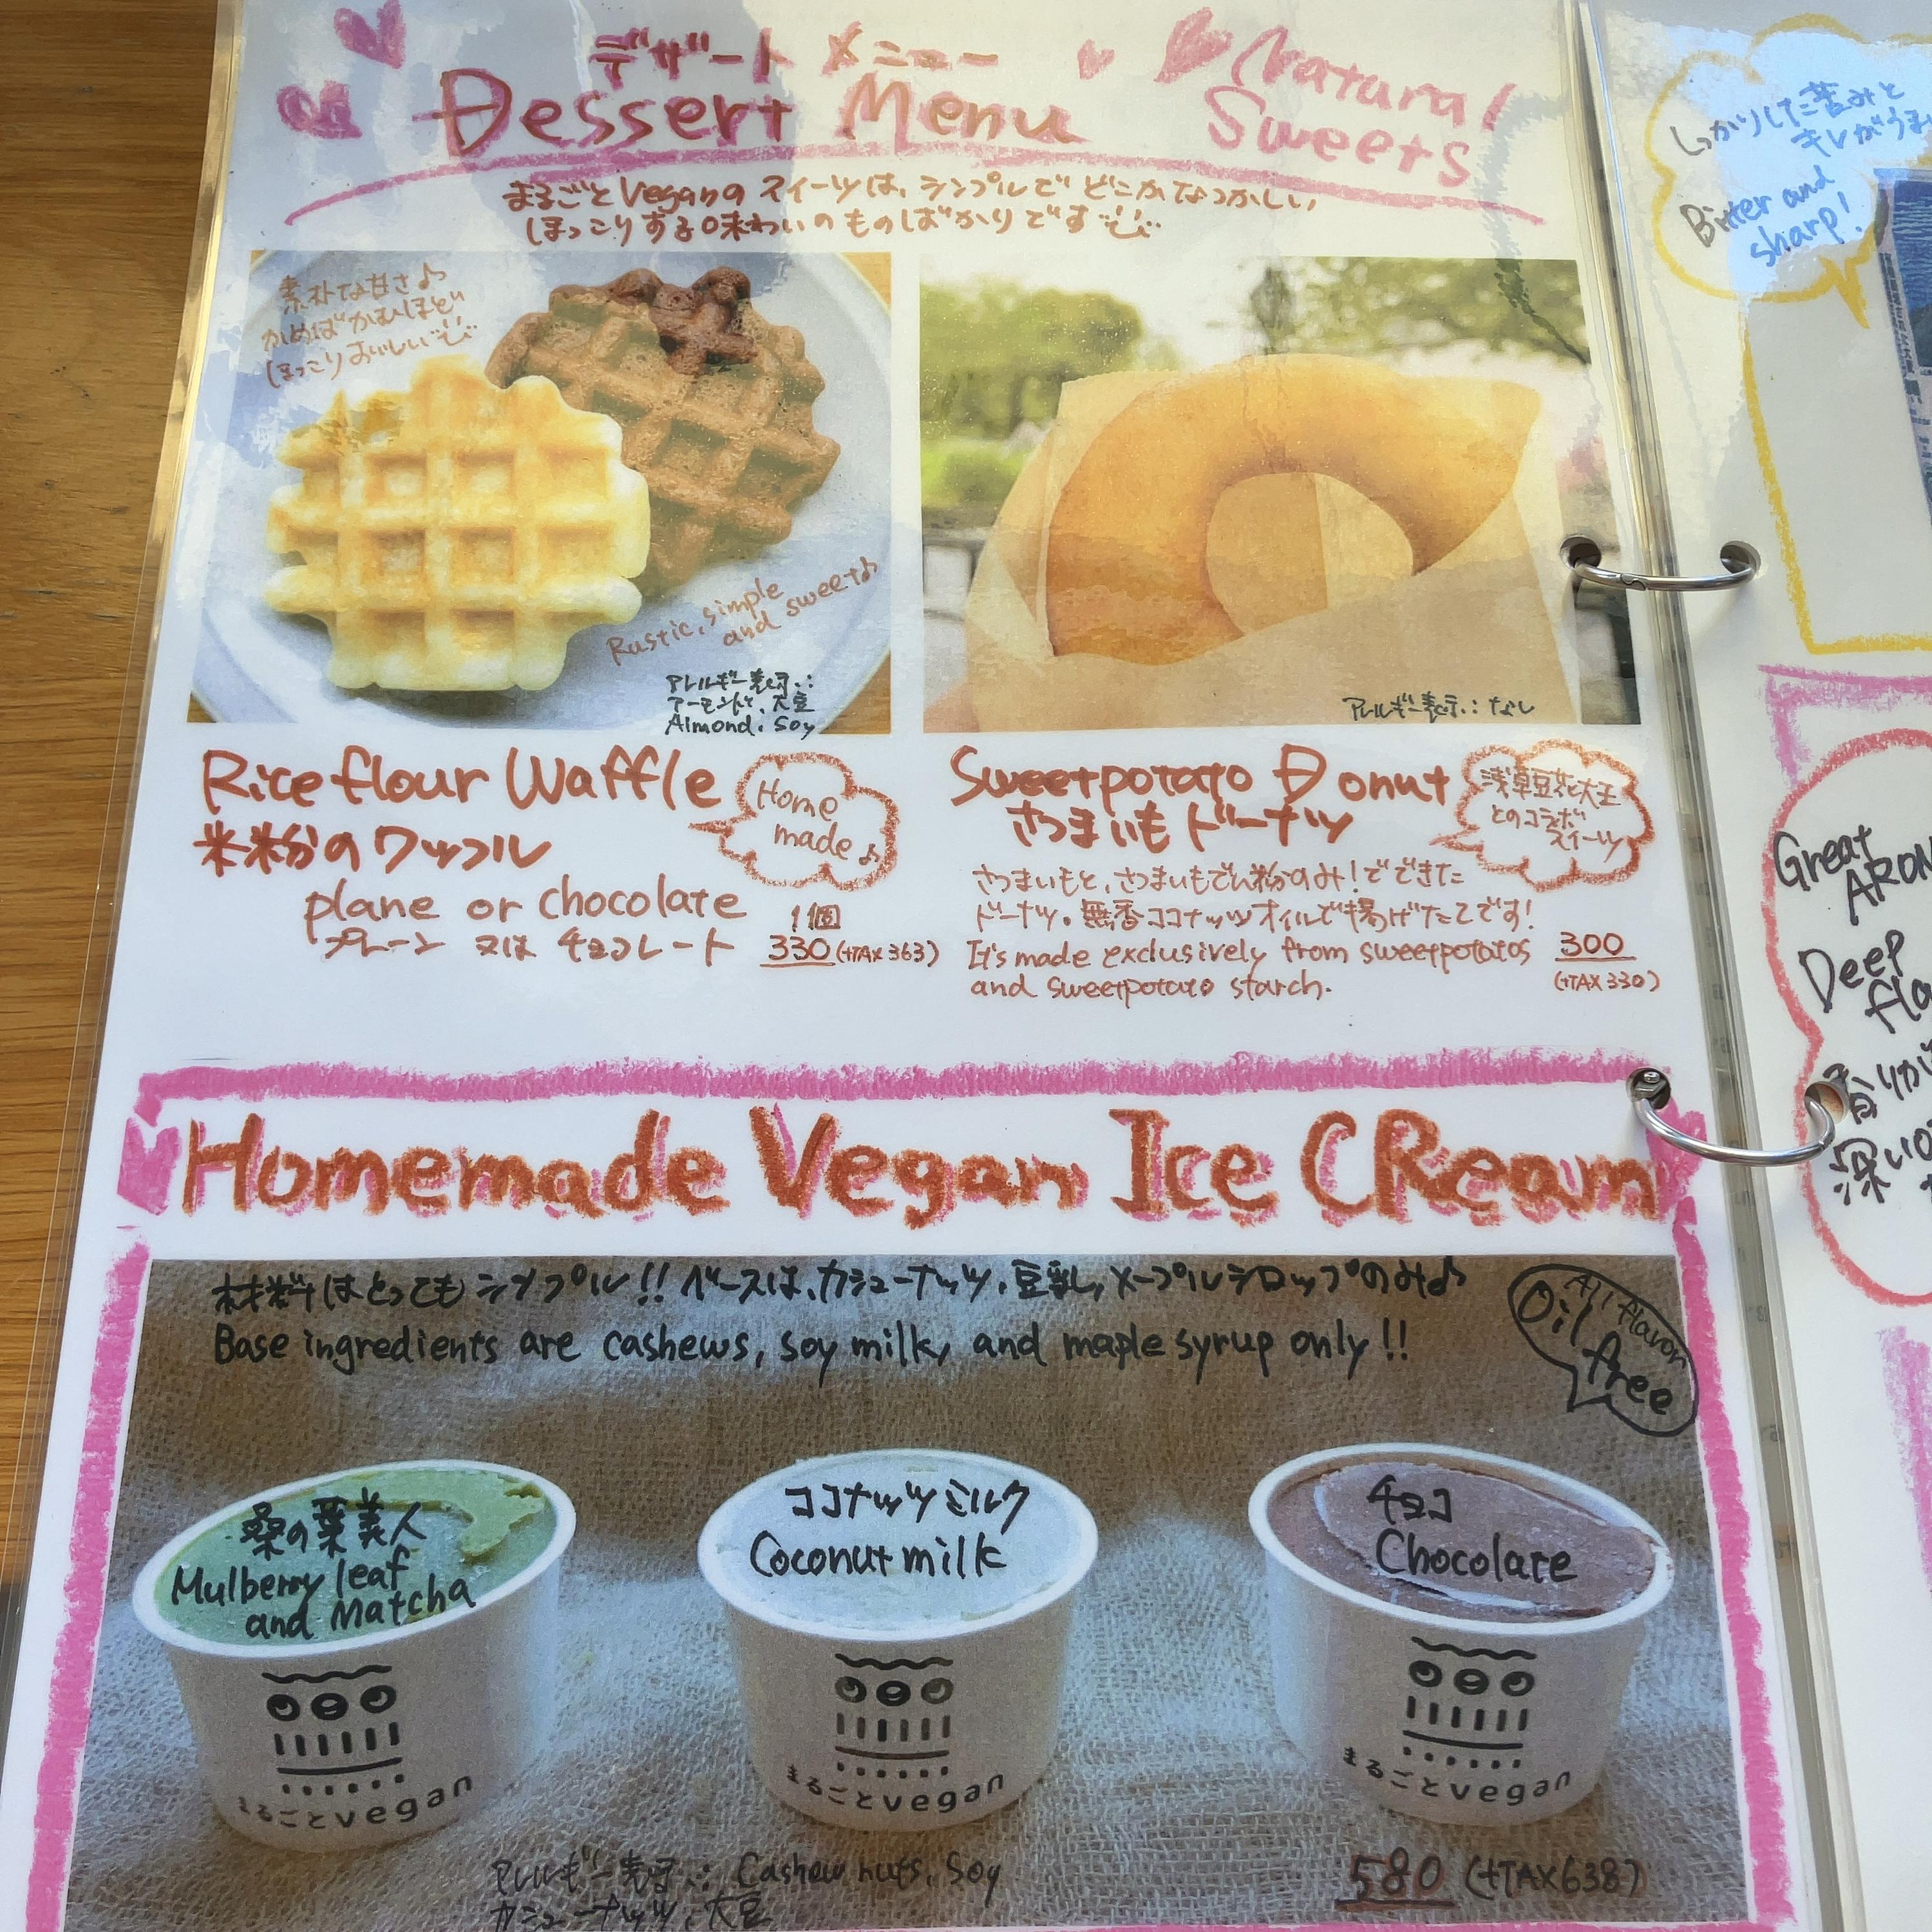 デザート メニュー
Dessert Menu
Natural
Sweets
まるごとVeganの スイーツは、シンプルで どこかなつかしい
ほっこりする味わいのものばかりです
素朴な甘さ♪
かめばかむほど
ほっこりおいしい
Rustic, simple
and sweet♪
アレルギー表示:
アーモンド、大豆
Almond, Soy
アレルギー表示:なし
Rice flour Waffle
米粉のワッフル
Home
made♪
plane or chocolate
プレーン 又は チョコレート
1個
330(+TAX 363)
Sweetpotato Donut
さつまいもドーナツ
浅草豆花大王
とのコラボ
スイーツ
さつまいもと、さつまいもでん粉のみ!でできた
ドーナツ。無香ココナッツオイルで揚げたてです!
It's made exclusively from sweetpotatos
and sweetpotato starch.
300
(+TAX 330)
Homemade Vegan Ice CReam
材料はとってもシンプル!! ベースは、カシューナッツ、豆乳、メープルシロップのみ♪
Base ingredients are cashews, soy milk, and maple syrup only!!
All flavor
Oil free
桑の葉美人
Mulberry leaf
and Matcha
ココナッツミルク
Coconut milk
チョコ
Chocolate
まるごとvegan
まるごとvegan
まるごとvegan
アレルギー表示: Cashew nuts, Soy
カシューナッツ、大豆
580 (+TAX638)
しっかりした苦みと
キレがうま
Bitter and
sharp!
Great
Deep